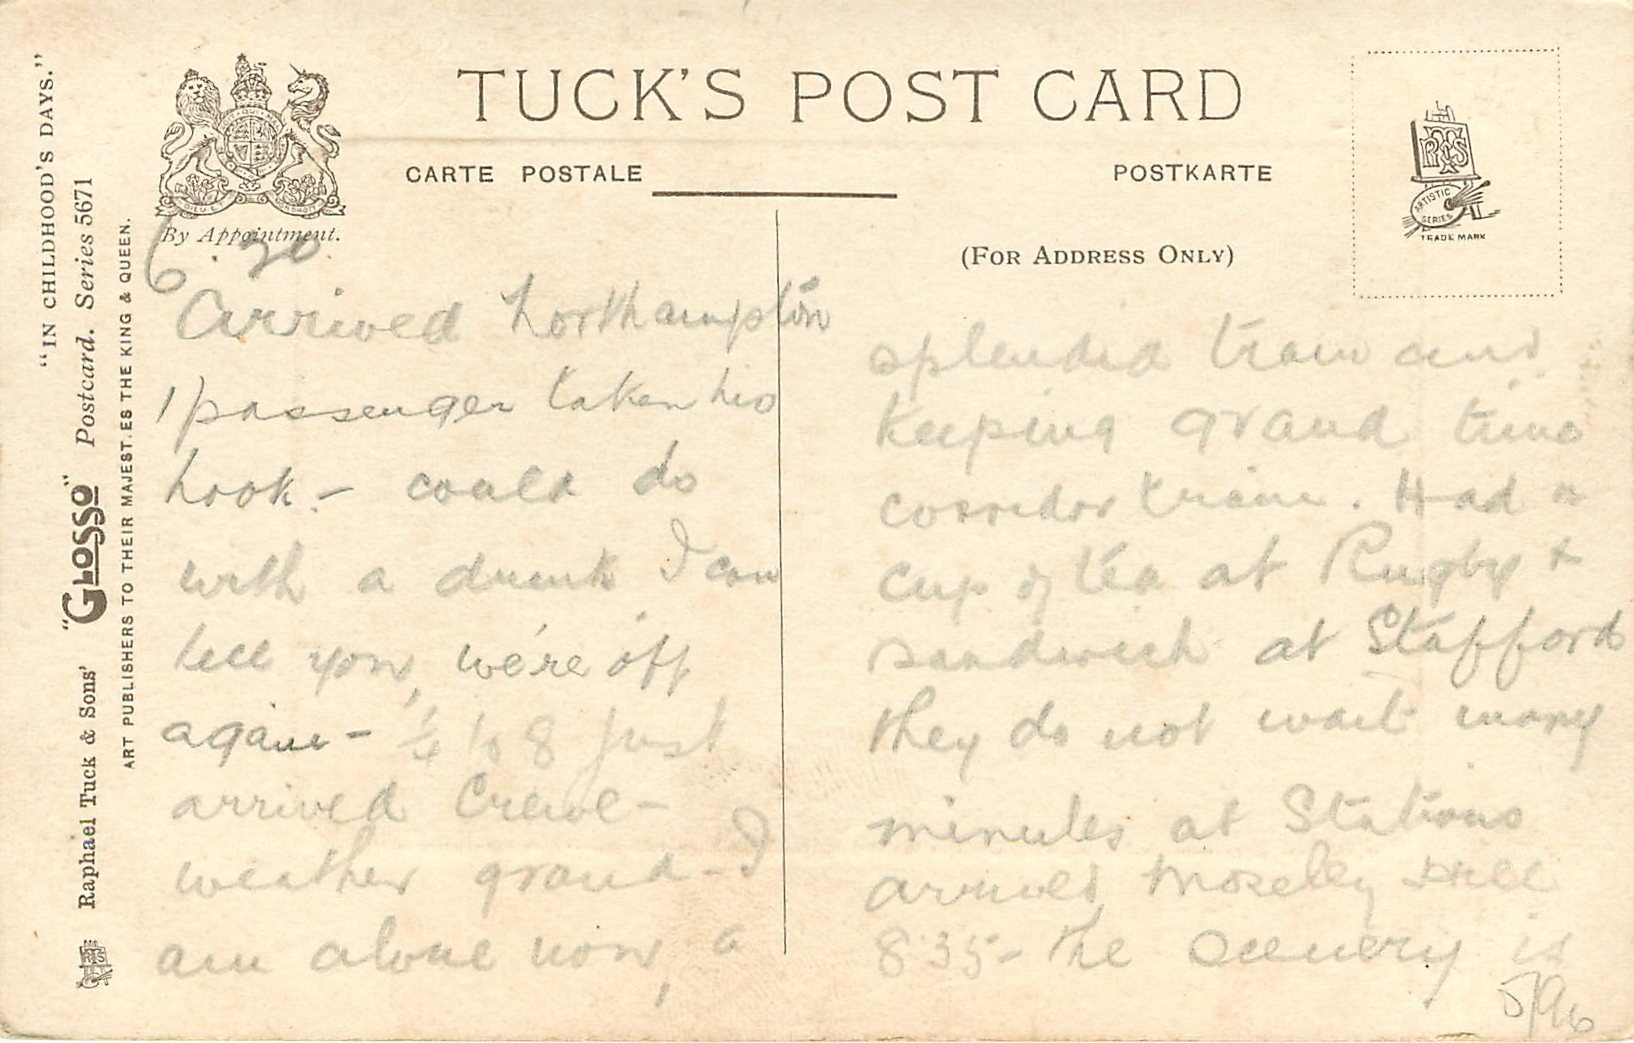 TUCK'S POST CARD
CARTE POSTALE
POSTKARTE
By Appointment.
(FOR ADDRESS ONLY)
ARTISTIC
SERIES
TRADE MARK
"IN CHILDHOOD'S DAYS."
Raphael Tuck & Sons' "GLOSSO" Postcard. Series 5671
ART PUBLISHERS TO THEIR MAJESTIES THE KING & QUEEN.
6.20
Arrived Northampton
1 passenger taken his
hook - could do
with a drink I can
tell you, we're off
again - ¼ to 8 just
arrived Crewe -
weather grand - I
am alone now, a
splendid train and
keeping grand time
corridor train. Had a
cup of tea at Rugby +
sandwich at Stafford
they do not wait many
minutes at Stations
arrived Mozeley Hill
8 35 - the scenery is
5/96